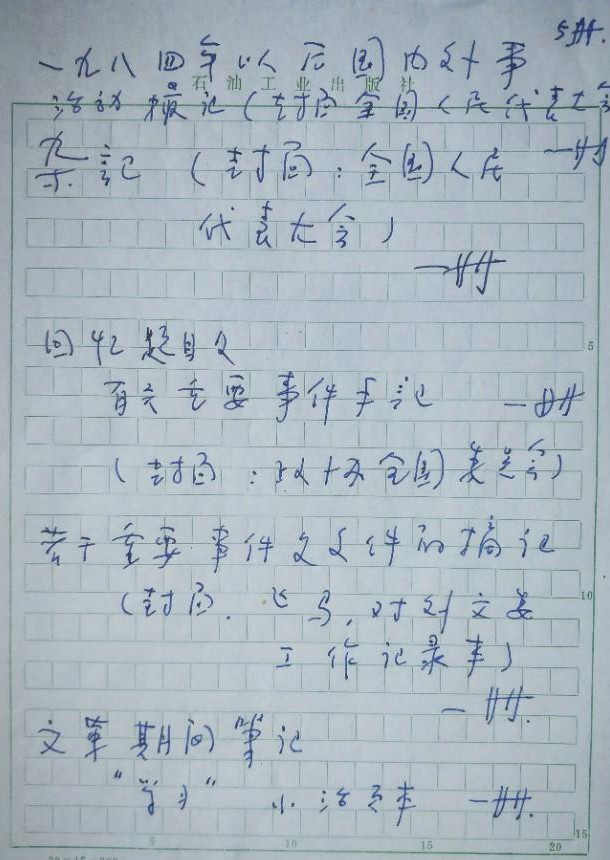 5册.
一九八四年以后国内外事
石油工业出版社
活动摘记（封面全国人民代表大会
记（封面：全国人民 一册
代表大会）
一册
回 题目文
5
有关重要事件手记 一册
（封面：政协全国委员会）
若干重要事件及文件的摘记
10
（封面. 飞马，对外文委
工作记录本）
一册.
文革期间笔记
"学习" 小 本 一册.
5 10 15 20
15